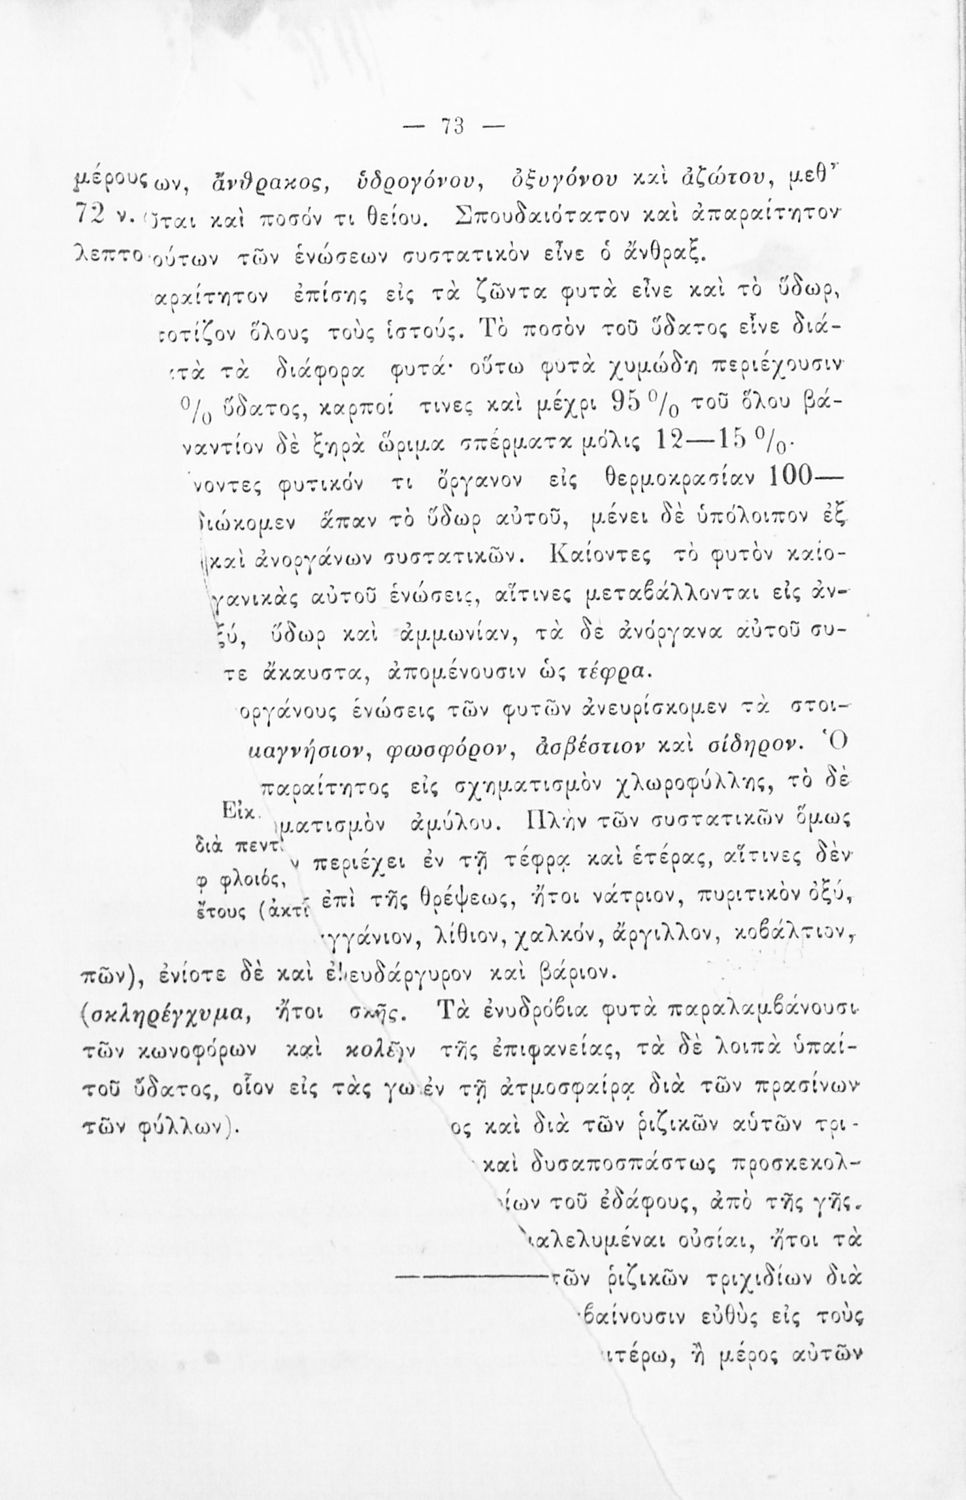 — 73 —
μέρους ων, ἄνθρακος, ὑδρογόνου, ὀξυγόνου καὶ ἀζώτου, μεθ'
72 ν. ται καὶ ποσόν τι θείου. Σπουδαιότατον καὶ ἀπαραίτητον
λεπτο ούτων τῶν ἑνώσεων συστατικὸν εἶνε ὁ ἄνθραξ.
αραίτητον ἐπίσης εἰς τὰ ζῶντα φυτὰ εἶνε καὶ τὸ ὕδωρ,
οτίζον ὅλους τοὺς ἱστούς. Τὸ ποσὸν τοῦ ὕδατος εἶνε διά-
τὰ τὰ διάφορα φυτά· οὕτω φυτὰ χυμώδη περιέχουσιν
% ὕδατος, καρποί τινες καὶ μέχρι 95 % τοῦ ὅλου βά-
ναντίον δὲ ξηρὰ ὥριμα σπέρματα μόλις 12—15 %.
νοντες φυτικόν τι ὄργανον εἰς θερμοκρασίαν 100—
διώκομεν ἅπαν τὸ ὕδωρ αὐτοῦ, μένει δὲ ὑπόλοιπον ἐξ
καὶ ἀνοργάνων συστατικῶν. Καίοντες τὸ φυτὸν καίο-
γανικὰς αὐτοῦ ἑνώσεις, αἵτινες μεταβάλλονται εἰς ἀν-
ξύ, ὕδωρ καὶ ἀμμωνίαν, τὰ δὲ ἀνόργανα αὐτοῦ συ-
τε ἄκαυστα, ἀπομένουσιν ὡς τέφρα.
οργάνους ἑνώσεις τῶν φυτῶν ἀνευρίσκομεν τὰ στοι-
μαγνήσιον, φωσφόρον, ἀσβέστιον καὶ σίδηρον. Ὁ
παραίτητος εἰς σχηματισμὸν χλωροφύλλης, τὸ δὲ
Εἰκ. ματισμὸν ἀμύλου. Πλὴν τῶν συστατικῶν ὅμως
διὰ πεντ
ν περιέχει ἐν τῇ τέφρᾳ καὶ ἑτέρας, αἵτινες δὲν
φ φλοιός,
ἐπὶ τῆς θρέψεως, ἤτοι νάτριον, πυριτικὸν ὀξύ,
ἔτους (ἀκτῖ
γγάνιον, λίθιον, χαλκόν, ἄργιλλον, κοβάλτιον,
πῶν), ἐνίοτε δὲ καὶ ἐ ευδάργυρον καὶ βάριον.
(σκληρέγχυμα, ἤτοι σκ ῆς. Τὰ ἐνυδρόβια φυτὰ παραλαμβάνουσι
τῶν κωνοφόρων καὶ κολε ν τῆς ἐπιφανείας, τὰ δὲ λοιπὰ ὑπαί-
τοῦ ὕδατος, οἷον εἰς τὰς γω ἐν τῇ ἀτμοσφαίρᾳ διὰ τῶν πρασίνων
τῶν φύλλων). ος καὶ διὰ τῶν ῥιζικῶν αὑτῶν τρι-
καὶ δυσαποσπάστως προσκεκολ-
ίων τοῦ ἐδάφους, ἀπὸ τῆς γῆς.
ιαλελυμέναι οὐσίαι, ἤτοι τὰ
τῶν ῥιζικῶν τριχιδίων διὰ
βαίνουσιν εὐθὺς εἰς τοὺς
ιτέρω, ἢ μέρος αὐτῶν